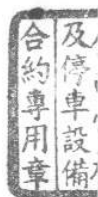 及停車設備
合約專用章